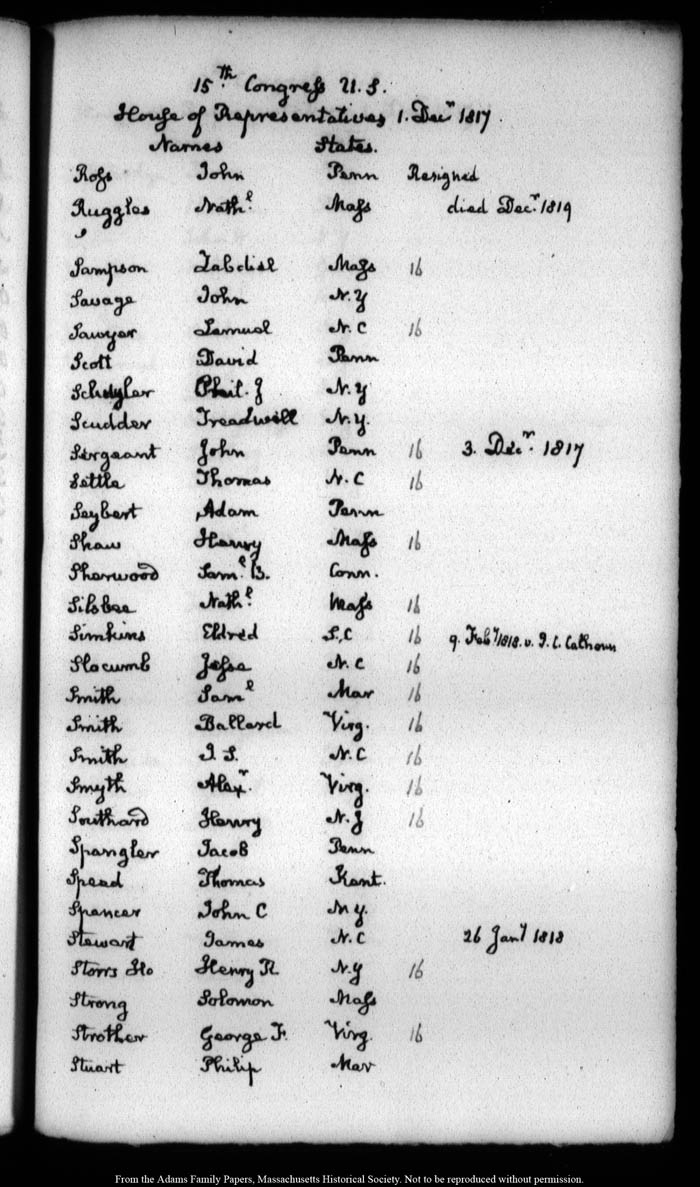 15.th Congress U.S.
House of Representatives 1. Decr 1817.
Names States.
Ross John Penn Resigned
Ruggles Nathl. Mass died Decr. 1819
Sampson Zabdiel Mass 16
Savage John N.Y
Sawyer Lemuel N.C 16
Scott David Penn
Schuyler Phil. J N.Y
Scudder Treadwell N.Y.
Sergeant John Penn 16 3. Decr. 1817
Settle Thomas N.C 16
Seybert Adam Penn
Shaw Henry Mass 16
Sherwood Saml. B. Conn.
Silsbee Nathl. Mass 16
Simkins Eldred S.C 16 9. Feby 1818. v. J. C. Calhoun
Slocumb Jesse N.C 16
Smith Saml Mar 16
Smith Ballard Virg. 16
Smith J. S. N.C 16
Smyth Alexr. Virg. 16
Southard Henry N.J 16
Spangler Jacob Penn
Speed Thomas Kent.
Spencer John C N.Y.
Stewart James N.C 26 Jany 1818
Storrs Henry R N.Y 16
Strong Solomon Mass
Strother George F. Virg. 16
Stuart Philip Mar
From the Adams Family Papers, Massachusetts Historical Society. Not to be reproduced without permission.